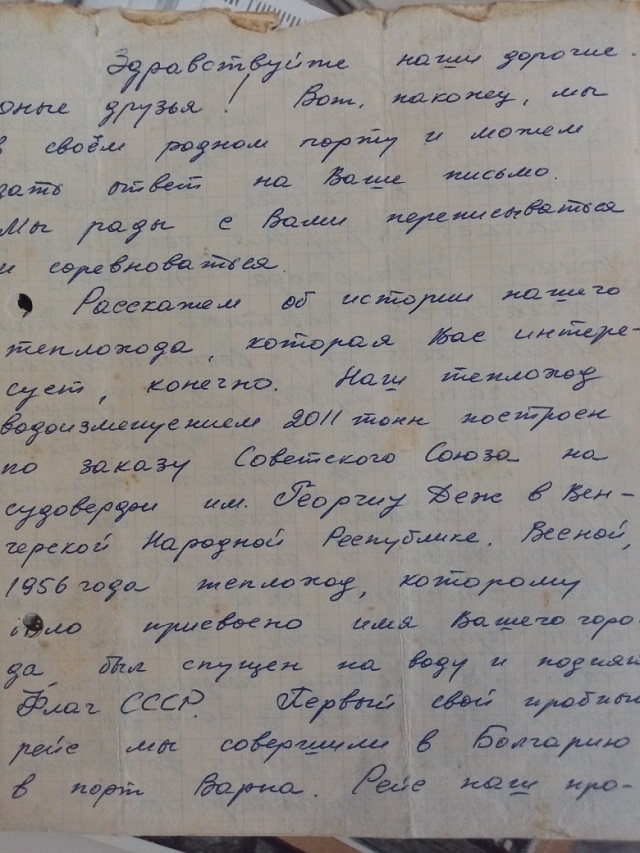 Здравствуйте наши дорогие
юные друзья! Вот, наконец, мы
в своём родном порту и можем
дать ответ на Ваше письмо.
Мы рады с Вами переписываться
и соревноваться.
Расскажем об истории нашего
теплохода, которая Вас интере-
сует, конечно. Наш теплоход
водоизмещением 2011 тонн построен
по заказу Советского Союза на
судоверфи им. Георгиу Деж в Вен-
герской Народной Республике. Весной,
1956 года теплоход, которому
было присвоено имя Вашего горо-
да, был спущен на воду и поднят
Флаг СССР. Первый свой пробный
рейс мы совершили в Болгарию
в порт Варна. Рейс наш про-